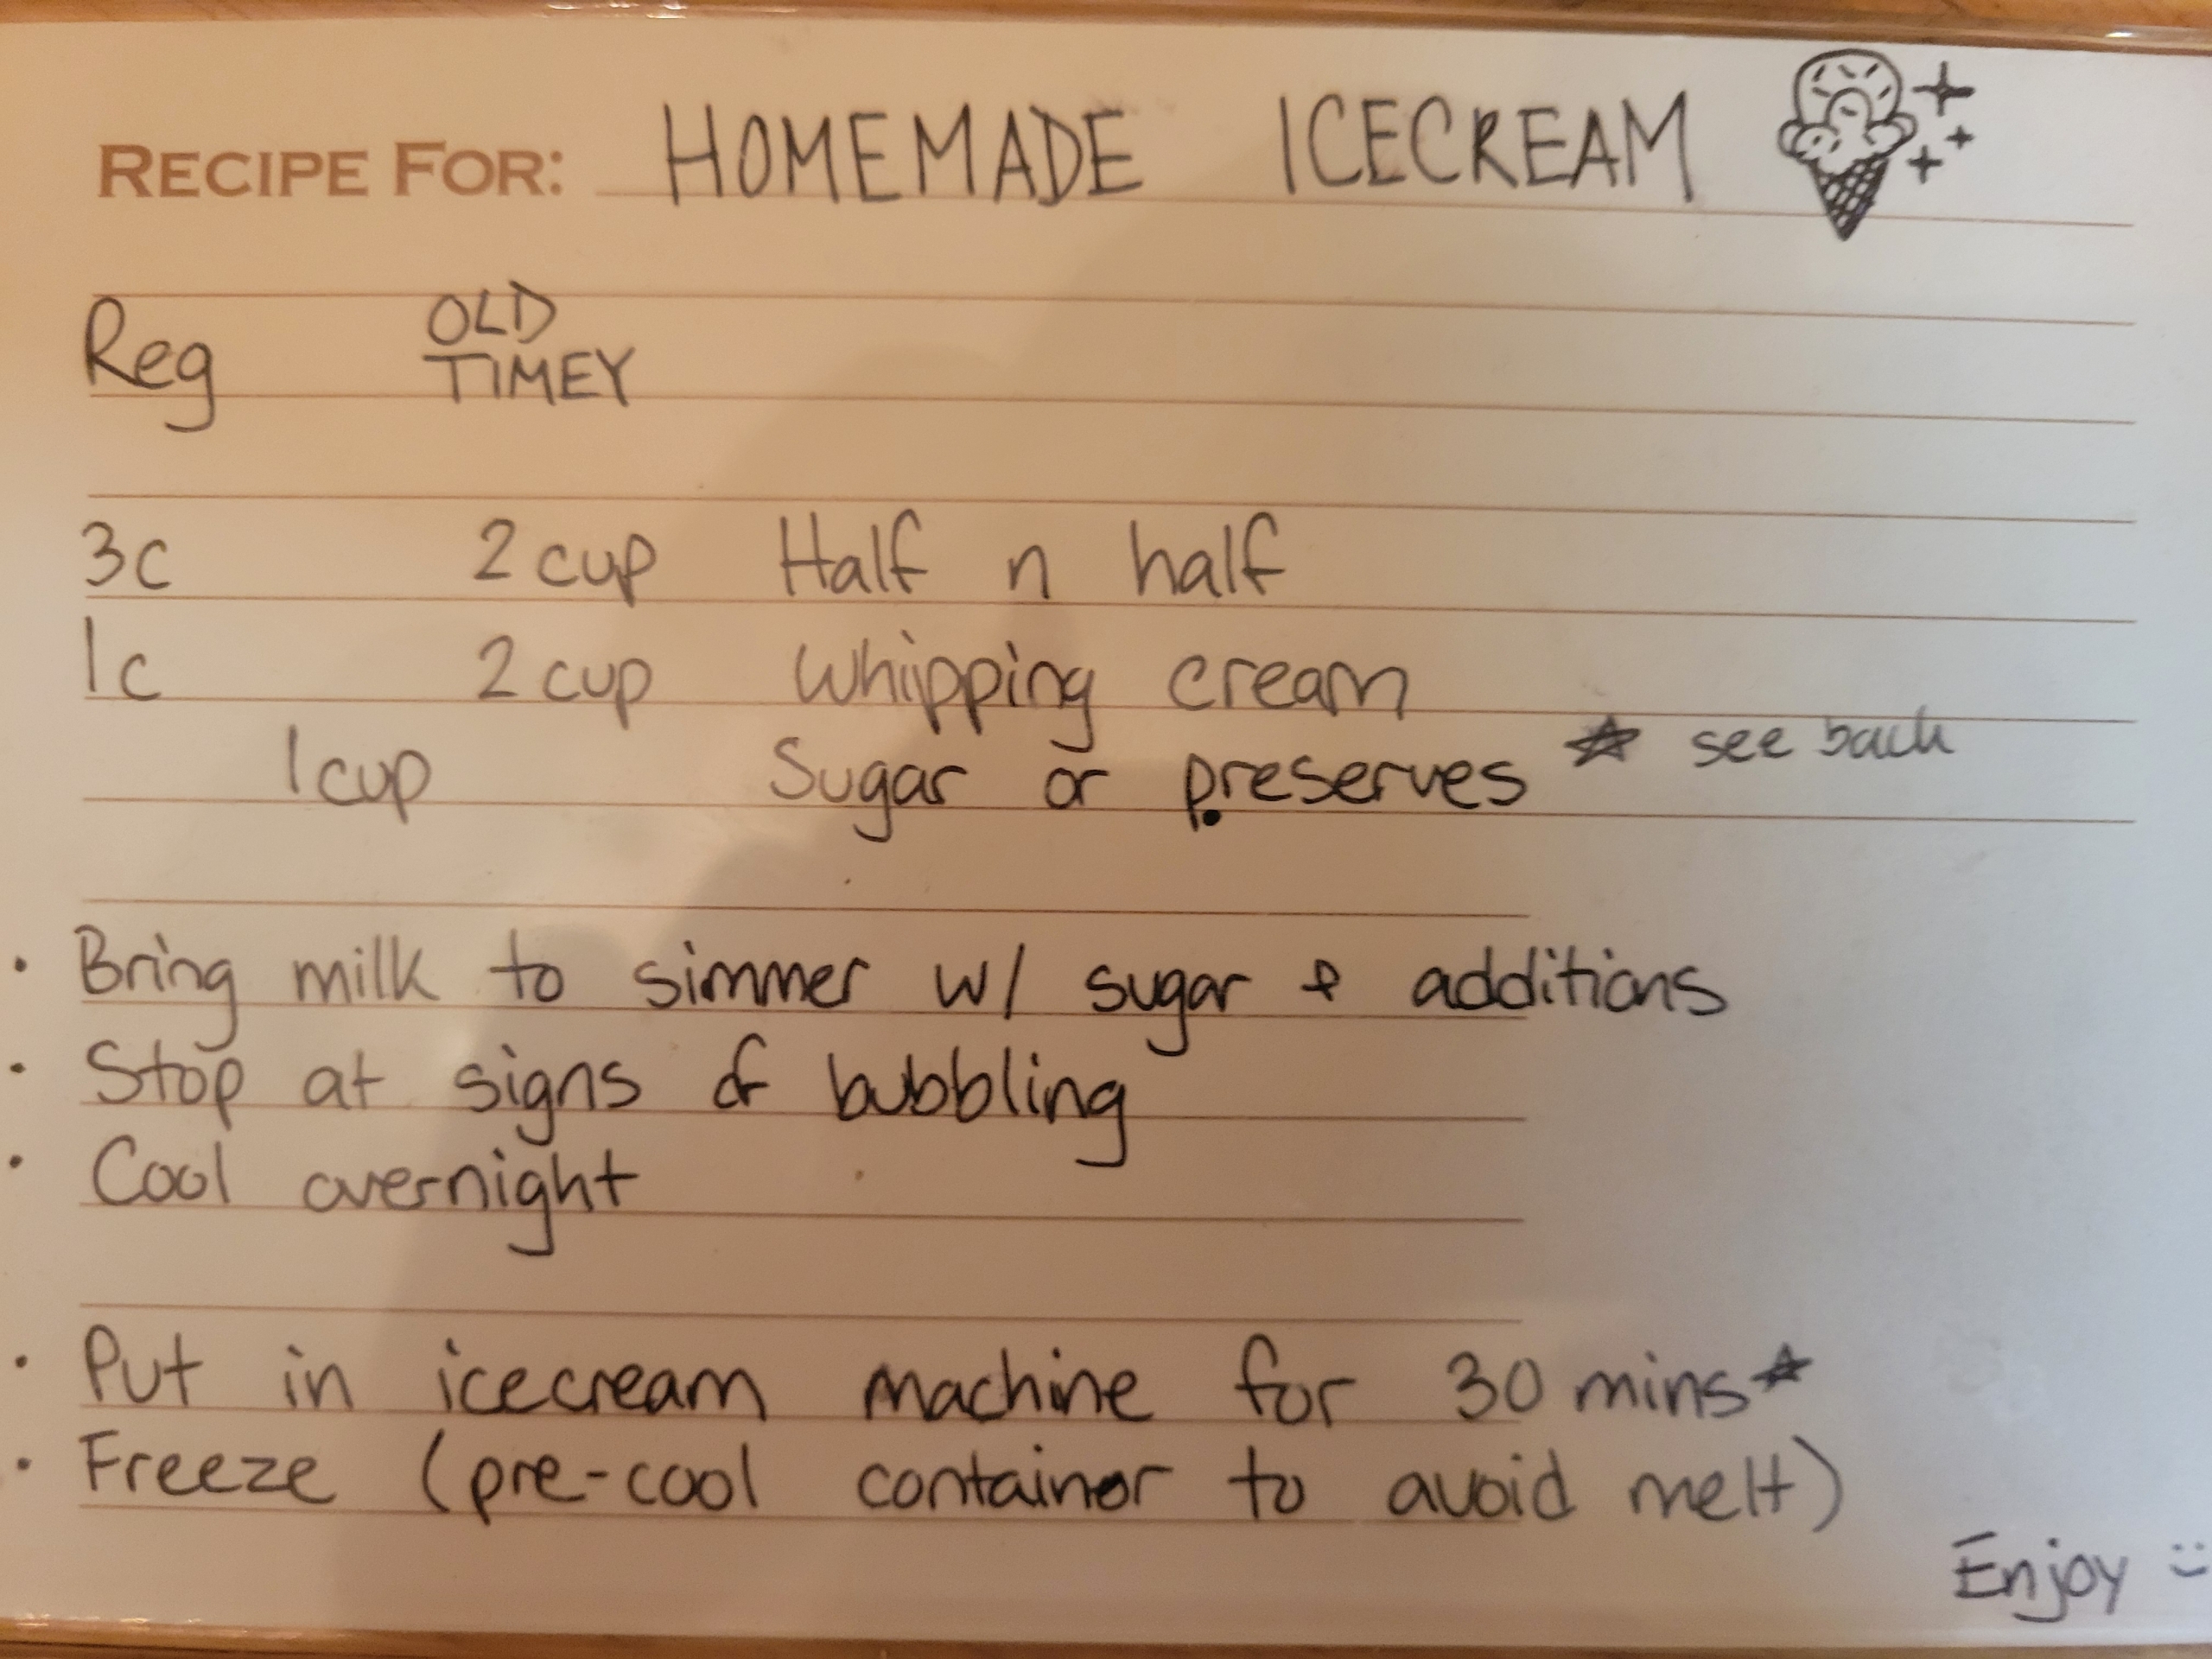 RECIPE FOR: HOMEMADE ICECREAM
Reg OLD TIMEY
3c 2 cup Half n half
1c 2 cup Whipping cream
1 cup Sugar or preserves ☆ see back
· Bring milk to simmer w/ sugar & additions
· Stop at signs of bubbling
· Cool overnight
· Put in icecream machine for 30 mins☆
· Freeze (pre-cool container to avoid melt)
Enjoy :)